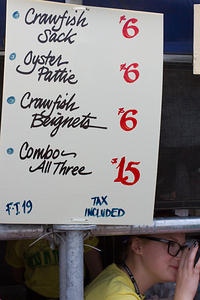 Crawfish $6
Sack
Oyster $6
Pattie
Crawfish $6
Beignets
Combo $15
All Three
F-I 19
TAX
INCLUDED